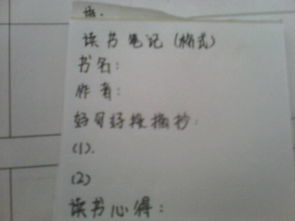 读书笔记(格式)
书名:
作者:
好词好段摘抄:
(1).
(2)
读书心得: